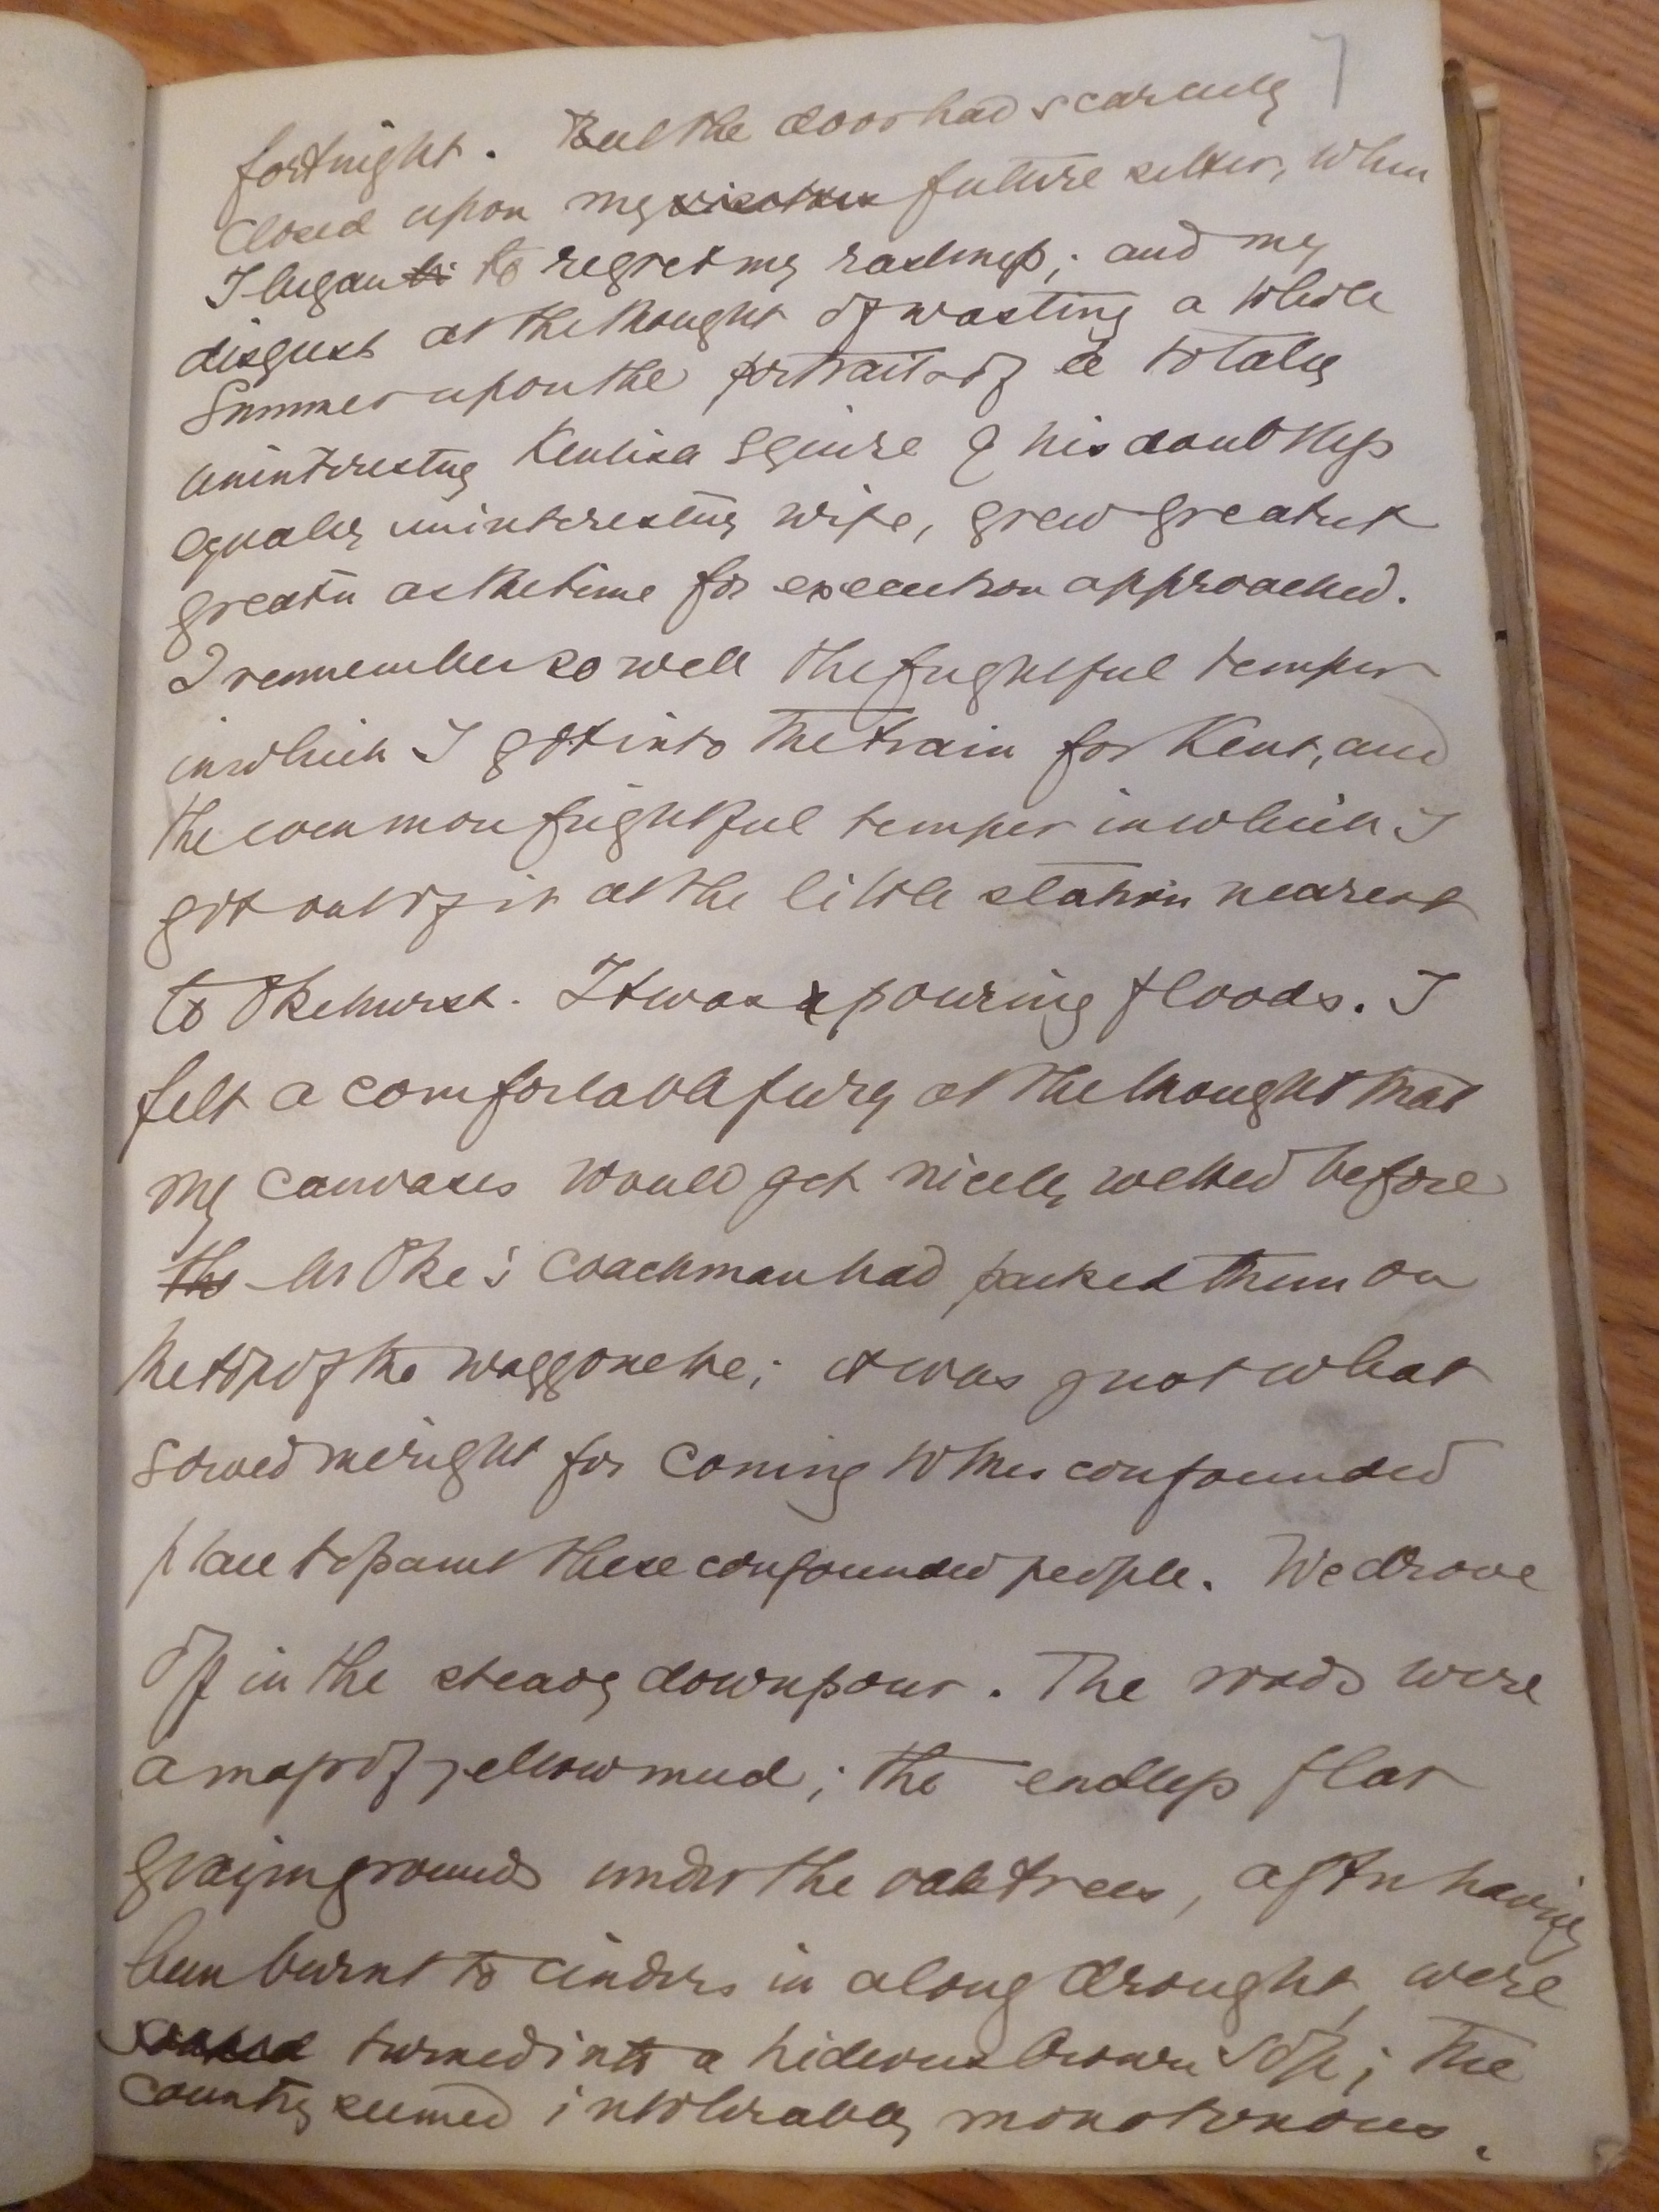 7
fortnight. But the door had scarcely
closed upon my future sitter, when
I began to regret my rashness; and my
disgust at the thought of wasting a whole
Summer upon the portrait of a totally
uninteresting Kentish Squire & his doubtless
equally uninteresting wife, grew greater &
greater as the time for execution approached.
I remember so well the frightful temper
in which I got into the train for Kent, and
the even more frightful temper in which I
got out of it at the little station nearest
to Okehurst. It was pouring floods. I
felt a comfortable fury at the thought that
my canvases would get nicely wetted before
the Mr Oke's coachman had packed them on
the top of the waggonette; it was just what
served me right for coming to this confounded
place to paint these confounded people. We drove
off in the steady downpour. The roads were
a mass of yellow mud; the endless flat
grazing grounds under the oak trees, after having
been burnt to cinders in a long drought, were
soaked turned into a hideous brown sop; the
country seemed intolerably monotonous.